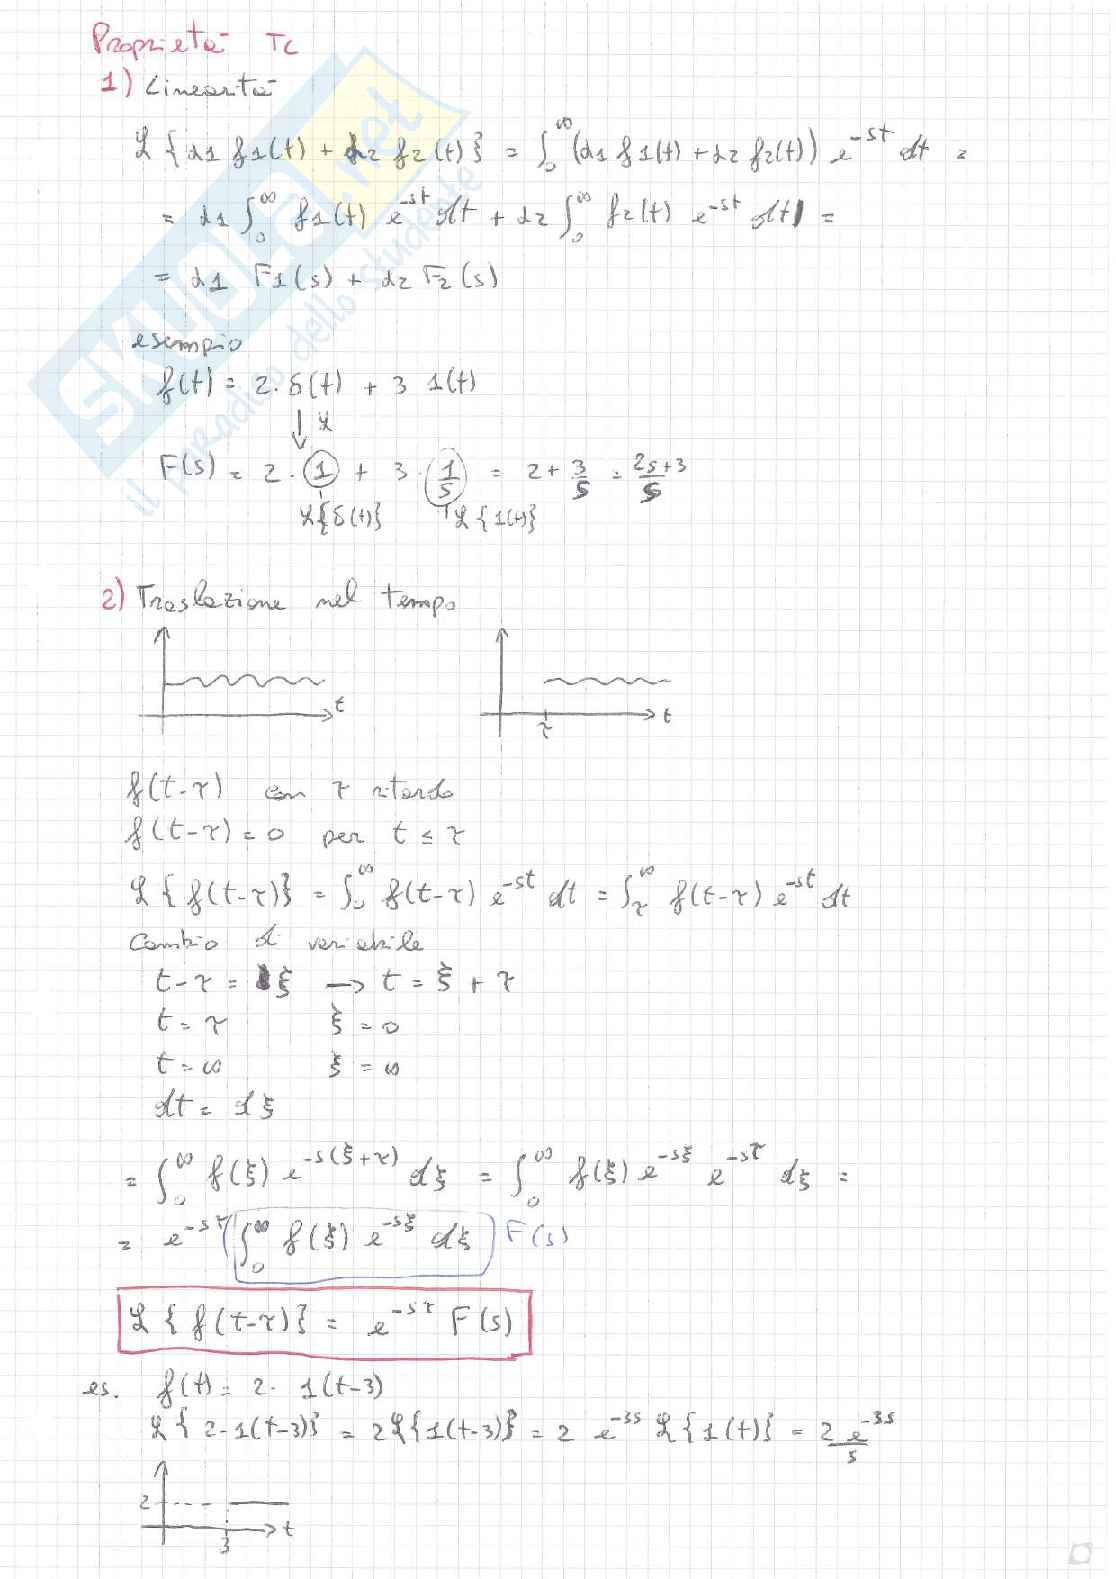 Proprietà TL
1) Linearità
ℒ{α1 f1(t) + α2 f2(t)} = ∫₀^∞ (α1 f1(t) + α2 f2(t)) e^-st dt =
= α1 ∫₀^∞ f1(t) e^-st dt + α2 ∫₀^∞ f2(t) e^-st dt =
= α1 F1(s) + α2 F2(s)
esempio
f(t) = 2·δ(t) + 3 1(t)
↓ ℒ
F(s) = 2·1 + 3·1/s = 2 + 3/s = (2s+3)/s
ℒ{δ(t)} ℒ{1(t)}
2) Traslazione nel tempo
t t
τ
f(t-τ) con τ ritardo
f(t-τ) = 0 per t ≤ τ
ℒ{f(t-τ)} = ∫₀^∞ f(t-τ) e^-st dt = ∫τ^∞ f(t-τ) e^-st dt
Cambio di variabile
t-τ = ξ → t = ξ + τ
t = τ ξ = 0
t = ∞ ξ = ∞
dt = dξ
= ∫₀^∞ f(ξ) e^-s(ξ+τ) dξ = ∫₀^∞ f(ξ) e^-sξ e^-sτ dξ =
= e^-sτ ∫₀^∞ f(ξ) e^-sξ dξ F(s)
ℒ{f(t-τ)} = e^-sτ F(s)
es. f(t) = 2· 1(t-3)
ℒ{2·1(t-3)} = 2ℒ{1(t-3)} = 2 e^-3s ℒ{1(t)} = 2 e^-3s/s
2
t
3
SKUOLA.net
il paradiso dello studente